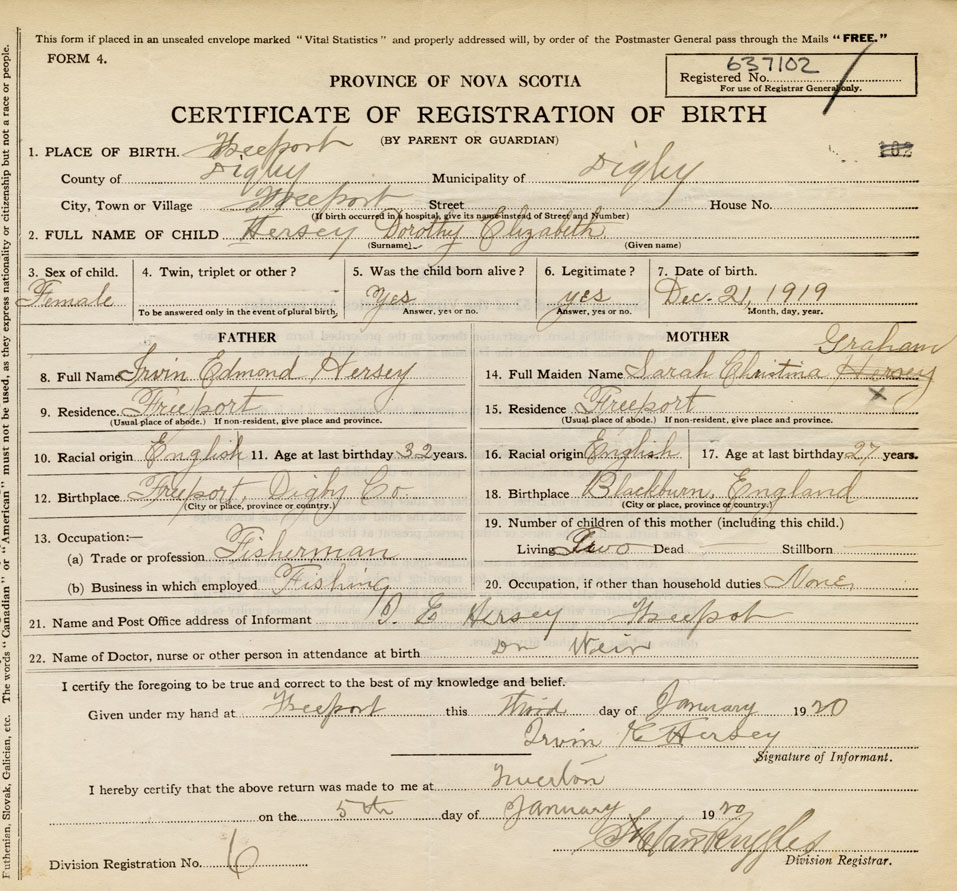 This form if placed in an unsealed envelope marked "Vital Statistics" and properly addressed will, by order of the Postmaster General pass through the Mails "FREE."
FORM 4.
637102
Registered No.
For use of Registrar General only.
PROVINCE OF NOVA SCOTIA
CERTIFICATE OF REGISTRATION OF BIRTH
(BY PARENT OR GUARDIAN)
102
1. PLACE OF BIRTH. Freeport
County of Digby Municipality of Digby
City, Town or Village Freeport Street House No.
(If birth occurred in a hospital, give its name instead of Street and Number)
2. FULL NAME OF CHILD Hersey Dorothy Elizabeth
(Surname) (Given name)
3. Sex of child. 4. Twin, triplet or other? 5. Was the child born alive? 6. Legitimate? 7. Date of birth.
Female Yes yes Dec. 21, 1919
To be answered only in the event of plural birth, Answer, yes or no. Answer, yes or no. Month, day, year.
FATHER MOTHER
Graham
8. Full Name Irvin Edmond Hersey 14. Full Maiden Name Sarah Christina Hersey
x
9. Residence. Freeport 15. Residence Freeport
(Usual place of abode.) If non-resident, give place and province. (Usual place of abode.) If non-resident, give place and province.
10. Racial origin English 11. Age at last birthday 32 years. 16. Racial origin English 17. Age at last birthday 27 years.
12. Birthplace Freeport, Digby Co. 18. Birthplace Blackburn, England
(City or place, province or country.) (City or place, province or country.)
13. Occupation:— 19. Number of children of this mother (including this child.)
(a) Trade or profession Fisherman Living Two Dead Stillborn
(b) Business in which employed Fishing 20. Occupation, if other than household duties None
21. Name and Post Office address of Informant I. E Hersey Freeport
22. Name of Doctor, nurse or other person in attendance at birth Dr Weir
I certify the foregoing to be true and correct to the best of my knowledge and belief.
Given under my hand at Freeport this third day of January 1920
Irvin E Hersey
Signature of Informant.
I hereby certify that the above return was made to me at Tiverton
on the 5th day of January 1920
Ruggles
Division Registrar.
Division Registration No. 6
Ruthenian, Slovak, Galician, etc. The words "Canadian" or "American" must not be used, as they express nationality or citizenship but not a race or people.